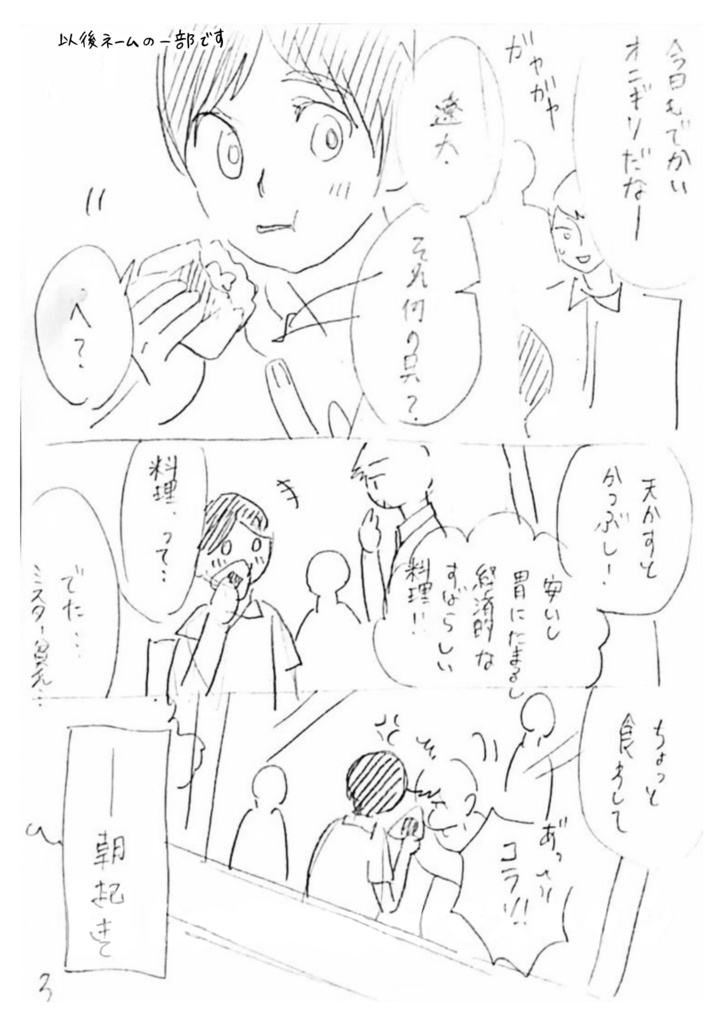 以後ネームの一部です
今日もでかい
オニギリだなー
ガヤガヤ
遼太、
それ何の具?
へ?
天かすと
かつぶし!
安いし
胃にたまるし
経済的な
すばらしい
料理!!
料理、って…
でた…
ミスター貧乏…
ちょっと
食わして
あっ
コラッ!!
―朝起きて
3